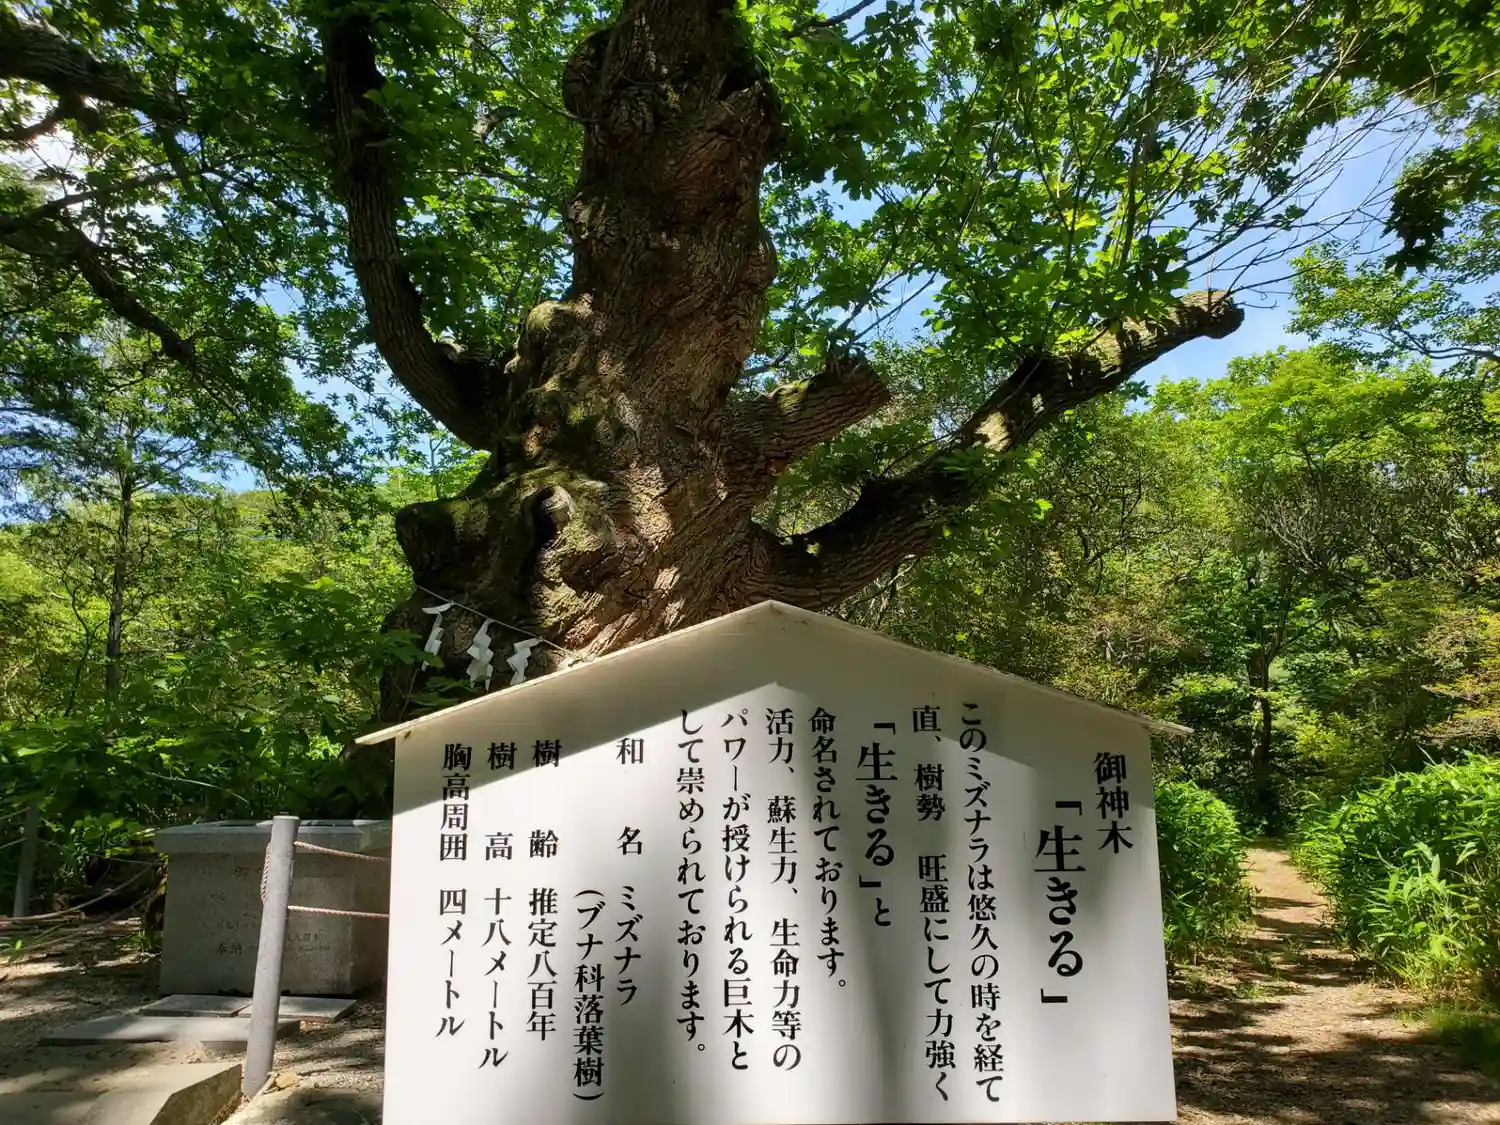 御神木
「生きる」
このミズナラは悠久の時を経て
直、樹勢 旺盛にして力強く
「生きる」と
命名されております。
活力、蘇生力、生命力等の
パワーが授けられる巨木と
して崇められております。
和名 ミズナラ
(ブナ科落葉樹)
樹齢 推定八百年
樹高 十八メートル
胸高周囲 四メートル
奉納